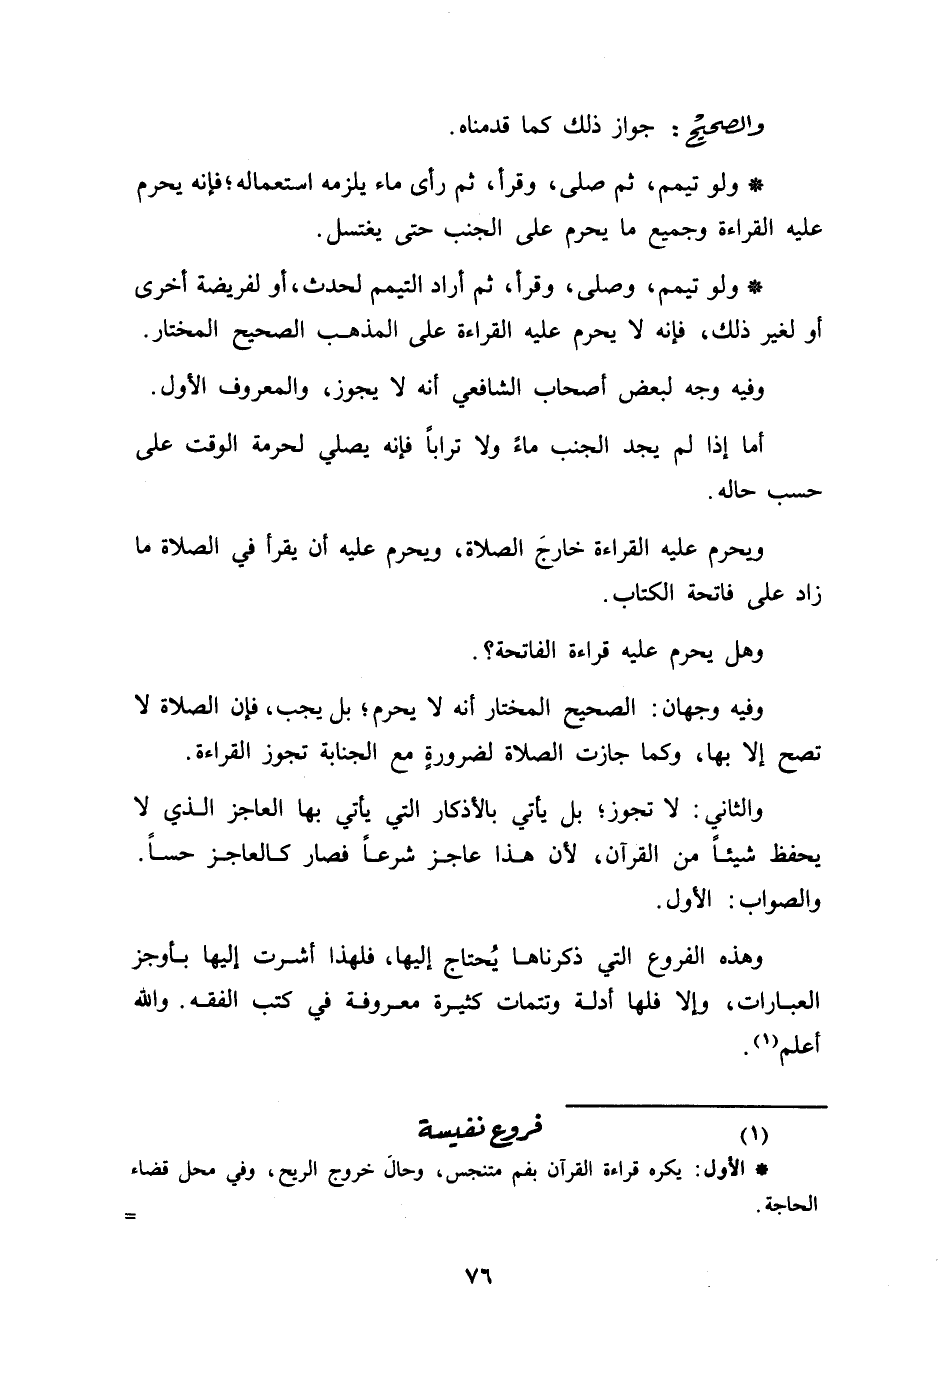 والصحيحُ : جواز ذلك كما قدمناه.
* ولو تيمم، ثم صلى، وقرأ، ثم رأى ماء يلزمه استعماله؛ فإنه يحرم
عليه القراءة وجميع ما يحرم على الجنب حتى يغتسل.
* ولو تيمم، وصلى، وقرأ، ثم أراد التيمم لحدث، أو لفريضة أخرى
أو لغير ذلك، فإنه لا يحرم عليه القراءة على المذهب الصحيح المختار.
وفيه وجه لبعض أصحاب الشافعي أنه لا يجوز، والمعروف الأول.
أما إذا لم يجد الجنب ماءً ولا تراباً فإنه يصلي لحرمة الوقت على
حسب حاله.
ويحرم عليه القراءة خارجَ الصلاة، ويحرم عليه أن يقرأ في الصلاة ما
زاد على فاتحة الكتاب.
وهل يحرم عليه قراءة الفاتحة؟.
وفيه وجهان: الصحيح المختار أنه لا يحرم؛ بل يجب، فإن الصلاة لا
تصح إلا بها، وكما جازت الصلاة لضرورةٍ مع الجنابة تجوز القراءة.
والثاني: لا تجوز؛ بل يأتي بالأذكار التي يأتي بها العاجز الذي لا
يحفظ شيئاً من القرآن، لأن هذا عاجز شرعاً فصار كالعاجز حساً.
والصواب: الأول.
وهذه الفروع التي ذكرناها يُحتاج إليها، فلهذا أشرت إليها بأوجز
العبارات، وإلا فلها أدلة وتتمات كثيرة معروفة في كتب الفقه. والله
أعلم(١).
(١) فروع نفيسة
* الأول: يكره قراءة القرآن بفم متنجس، وحالَ خروج الريح، وفي محل قضاء
الحاجة.
=
٧٦